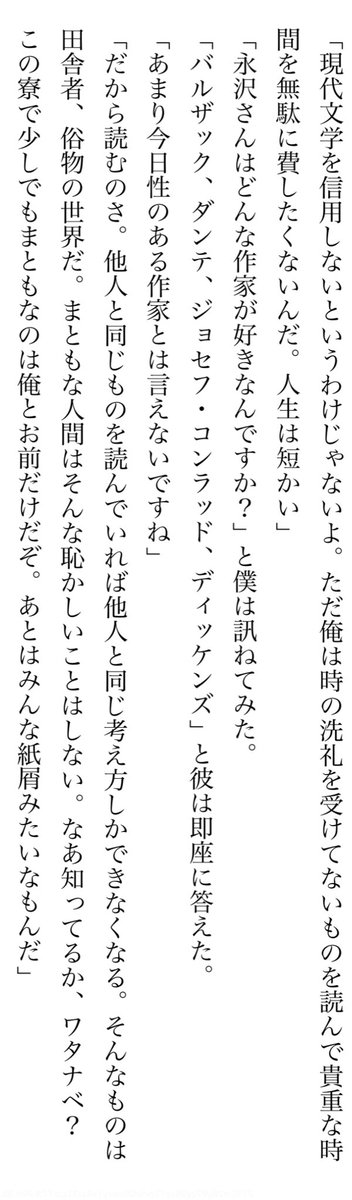 「現代文学を信用しないというわけじゃないよ。ただ俺は時の洗礼を受けてないものを読んで貴重な時
間を無駄に費したくないんだ。人生は短かい」
「永沢さんはどんな作家が好きなんですか？」と僕は訊ねてみた。
「バルザック、ダンテ、ジョセフ・コンラッド、ディッケンズ」と彼は即座に答えた。
「あまり今日性のある作家とは言えないですね」
「だから読むのさ。他人と同じものを読んでいれば他人と同じ考え方しかできなくなる。そんなものは
田舎者、俗物の世界だ。まともな人間はそんな恥かしいことはしない。なあ知ってるか、ワタナベ？
この寮で少しでもまともなのは俺とお前だけだぞ。あとはみんな紙屑みたいなもんだ」